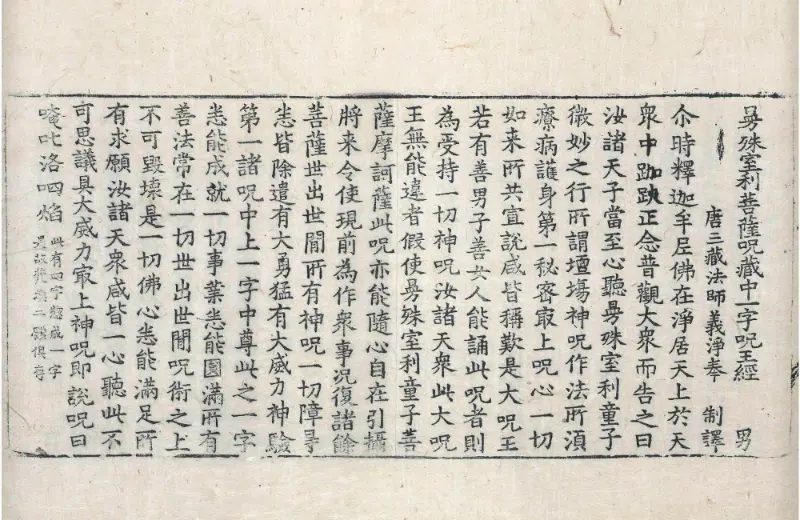 曼殊室利菩薩呪藏中一字呪王經　男
唐三藏法師義淨奉　制譯
尒時釋迦牟尼佛在淨居天上於天
衆中跏趺正念普觀大衆而告之曰
汝諸天子當至心聽曼殊室利童子
微妙之行所謂壇場神呪作法所湏
療病護身第一秘密㝡上呪心一切
如來所共宣說咸皆稱歎是大呪王
若有善男子善女人能誦此呪者則
為受持一切神呪汝諸天衆此大呪
王無能違者假使曼殊室利童子菩
薩摩訶薩此呪亦能隨心自在引攝
將來令使現前為作衆事況復諸餘
菩薩世出世間所有神呪一切障㝵
悉皆除遣有大勇猛有大威力神驗
第一諸呪中上一字中尊此之一字
悉能成就一切事業悉能圓滿所有
善法常在一切世出世間呪術之上
不可毀壞是一切佛心悉能滿足所
有求願汝諸天衆咸皆一心聽此不
可思議具大威力㝡上神呪即說呪曰
唵叱洛呬焰
此有四字惣成一字
是故梵漢二體俱存